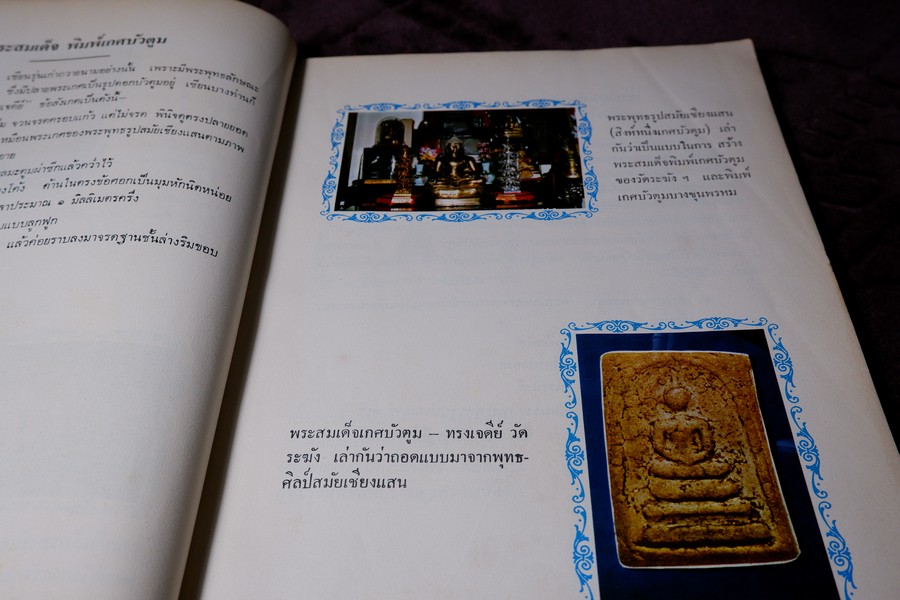 พระสมเด็จ พิมพ์เกศบัวตูม
เซียนรุ่นเก่าถวายนามอย่างนั้น เพราะมีพระพุทธลักษณะ
ซึ่งมีปลายพระเกศเป็นรูปดอกบัวตูมอยู่ เซียนบางท่านก็
เจดีย์" ข้อสังเกตเป็นดังนี้-
จวนจรดครอบแก้ว แต่ไม่จรด พินิจดูตรงปลายยอด
เหมือนพระเกศของพระพุทธรูปสมัยเชียงแสนตามภาพ
ผลมะตูมผ่าซีกแล้วคว่ำไว้
โค้ง ด้านในตรงข้อศอกเป็นมุมหักนิดหน่อย
ประมาณ ๑ มิลลิเมตรครึ่ง
แบบลูกฟูก
แล้วค่อยราบลงมาจรดฐานชั้นล่างริมขอบ
พระพุทธรูปสมัยเชียงแสน
(สิงห์หนึ่งเกศบัวตูม) เล่า
กันว่าเป็นแบบในการ สร้าง
พระสมเด็จพิมพ์เกศบัวตูม
ของวัดระฆัง ฯ และพิมพ์
เกศบัวตูมบางขุนพรหม
พระสมเด็จเกศบัวตูม – ทรงเจดีย์ วัด
ระฆัง เล่ากันว่าถอดแบบมาจากพุทธ-
ศิลป์สมัยเชียงแสน